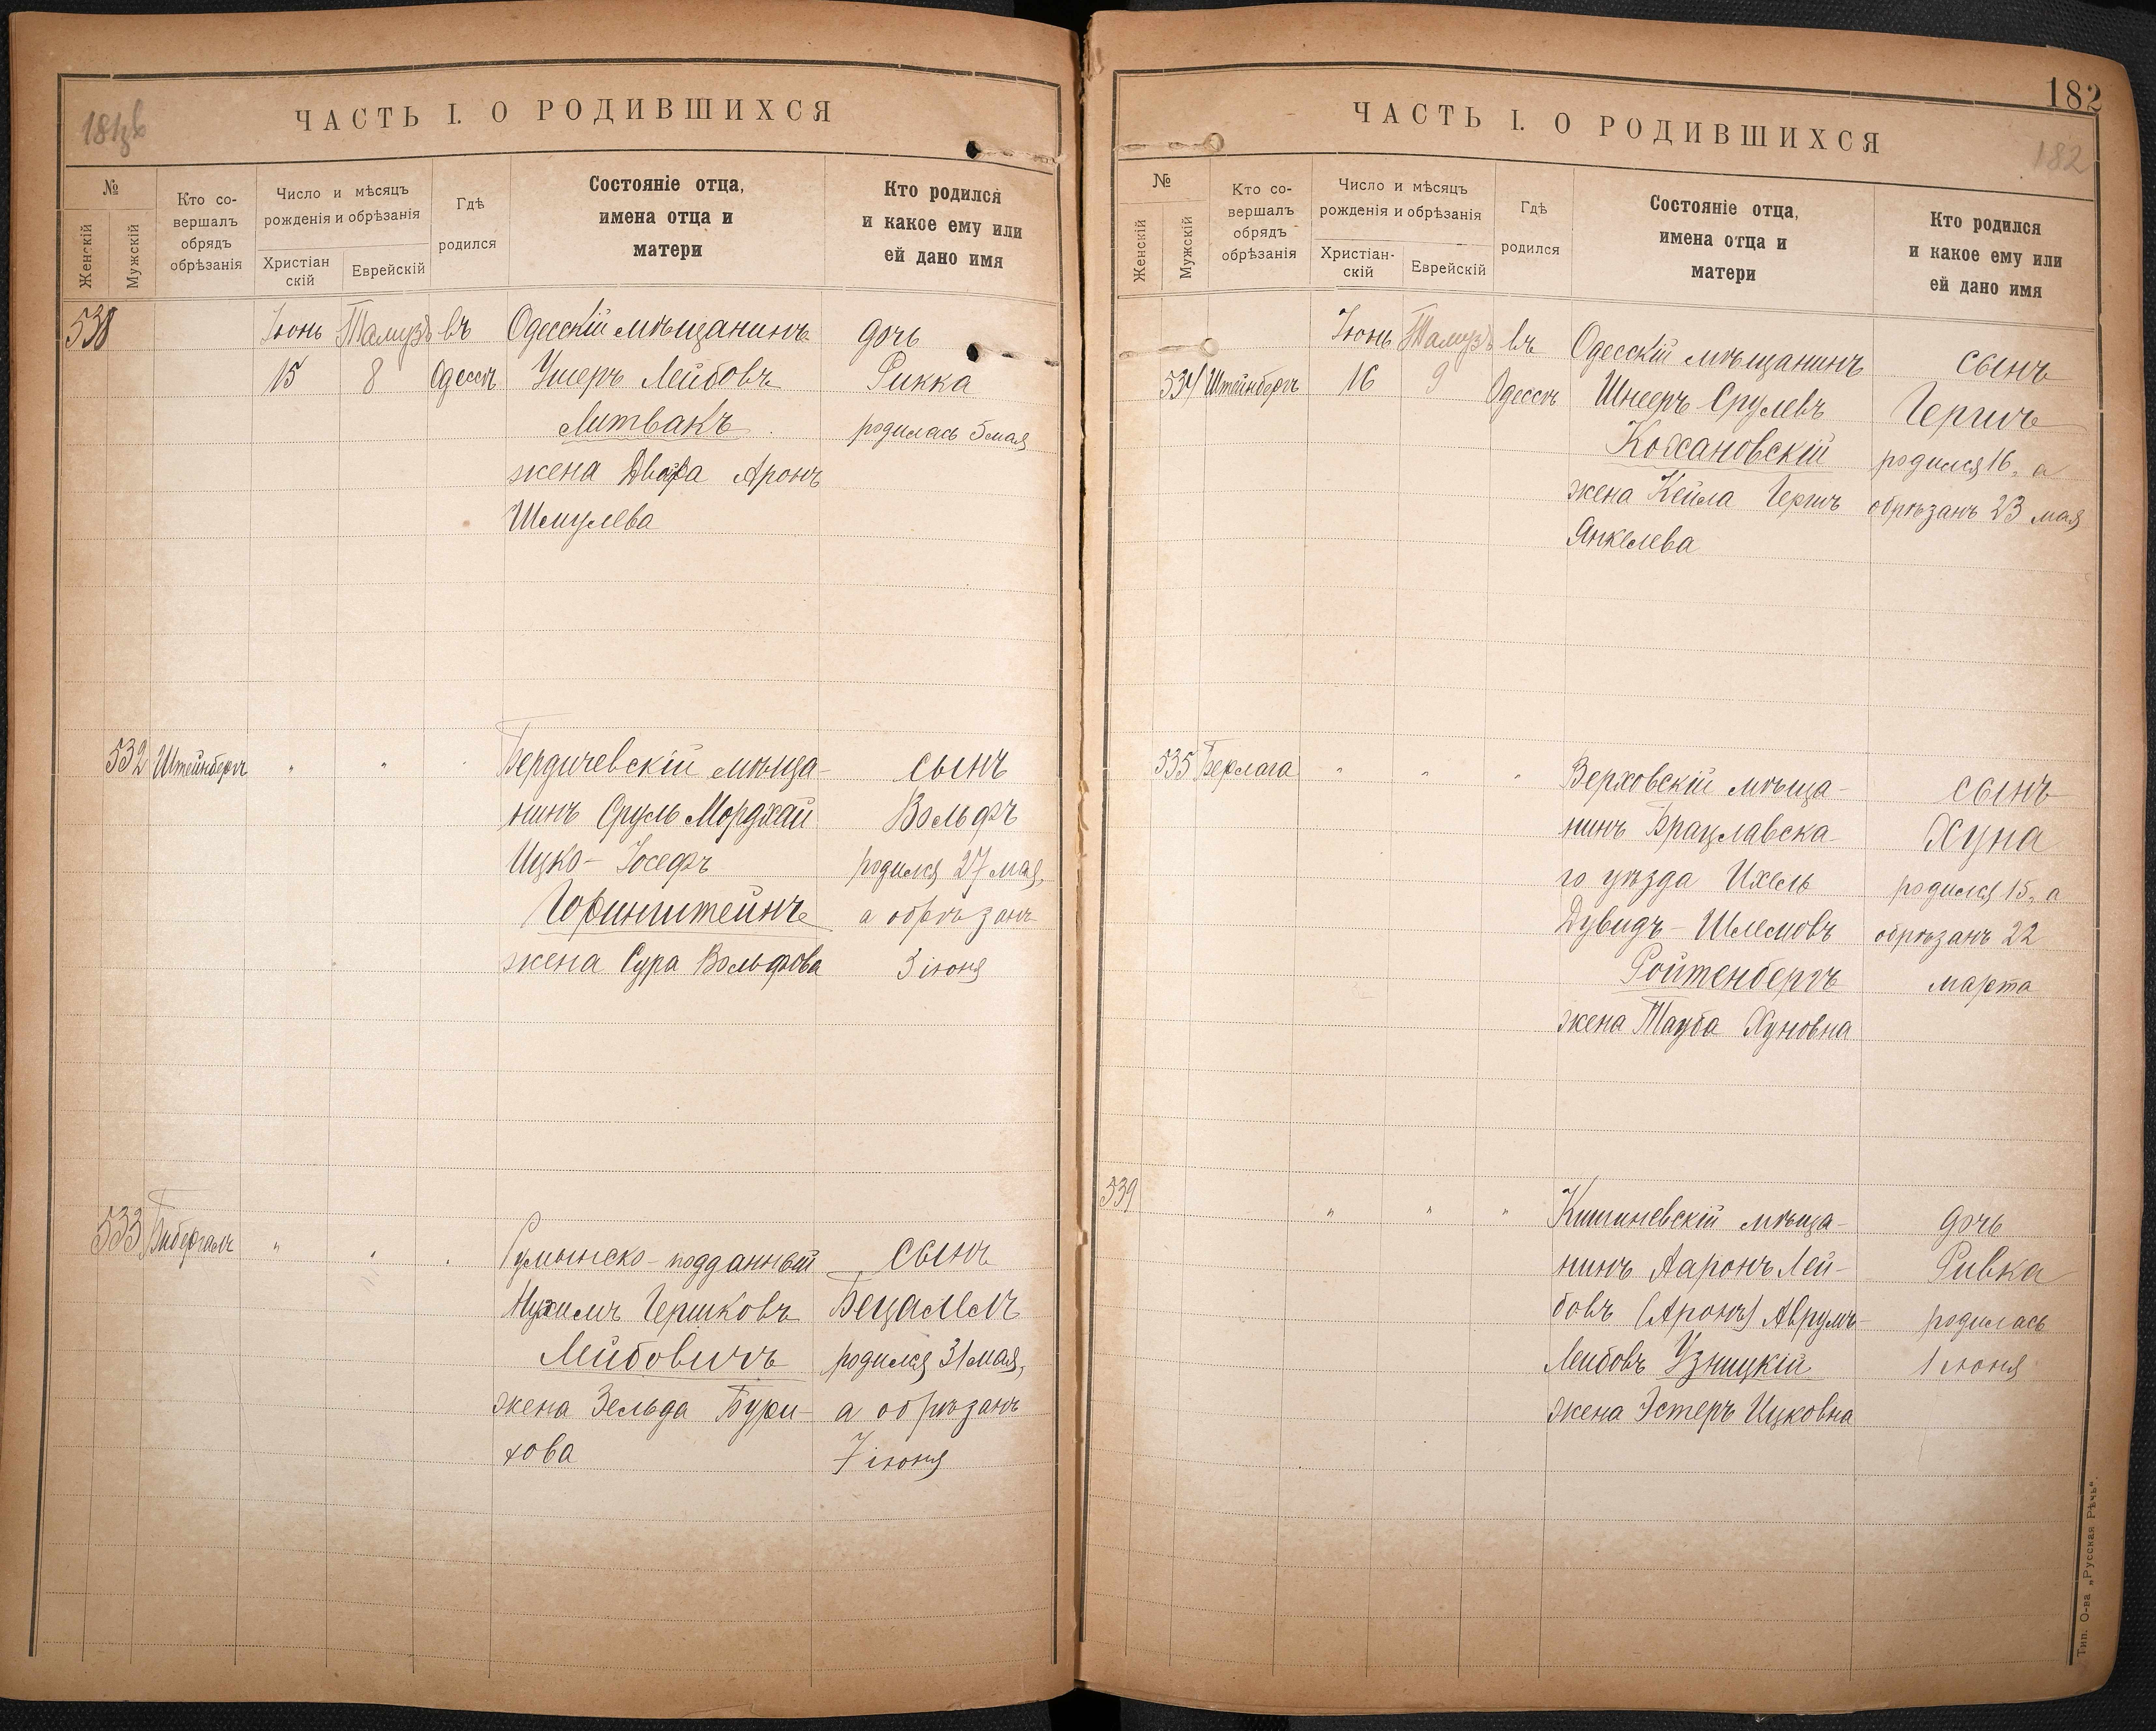 ЧАСТЬ I. О РОДИВШИХСЯ
№
Женскій
Мужскій
Кто со-
вершалъ
обрядъ
обрѣзанія
Число и мѣсяцъ
рожденія и обрѣзанія
Христіан
скій
Еврейскій
Гдѣ
родился
Состояніе отца,
имена отца и
матери
Кто родился
и какое ему или
ей дано имя
538
Іюнь
15
Тамузъ
8
въ
Одессѣ
Одесскій мѣщанинъ
Ушеръ Лейбовъ
Литвакъ
жена Двойра Аронъ
Шмулева
дочь
Рикка
родилась 5 мая
532
Штейнбергъ
"
"
Бердичевскій мѣща-
нинъ Сруль Мордхай
Ицко-Іосефъ
Горинштейнъ
жена Сура Вольфова
сынъ
Вольфъ
родился 27 мая,
а обрѣзанъ
3 іюня
533
Бибергалъ
"
"
Румынско-подданный
Нухимъ Гершковъ
Лейбовичъ
жена Зельда Бури-
хова
сынъ
Бецалель
родился 31 мая,
а обрѣзанъ
7 іюня
182
ЧАСТЬ I. О РОДИВШИХСЯ
182
№
Женскій
Мужскій
Кто со-
вершалъ
обрядъ
обрѣзанія
Число и мѣсяцъ
рожденія и обрѣзанія
Христіан-
скій
Еврейскій
Гдѣ
родился
Состояніе отца,
имена отца и
матери
Кто родился
и какое ему или
ей дано имя
534
Штейнбергъ
Іюнь
16
Тамузъ
9
въ
Одессѣ
Одесскій мѣщанинъ
Шнееръ Срулевъ
Кохановскій
жена Кейла Гершъ
Янкелева
сынъ
Гершъ
родился 16, а
обрѣзанъ 23 мая
535
Берлага
"
"
"
Верховскій мѣща-
нинъ Брацлавска-
го уѣзда Ихель
Дувидъ-Шлемовъ
Ройтенбергъ
жена Тауба Хуновна
сынъ
Хуна
родился 15, а
обрѣзанъ 22
марта
539
"
"
"
Кишиневскій мѣща-
нинъ Ааронъ Лей-
бовъ (Аронъ) Аврумъ-
Лейбовъ Узницкій
жена Эстеръ Ицковна
дочь
Ривка
родилась
1 іюня
Тип. О-ва „Русская Рѣчь".